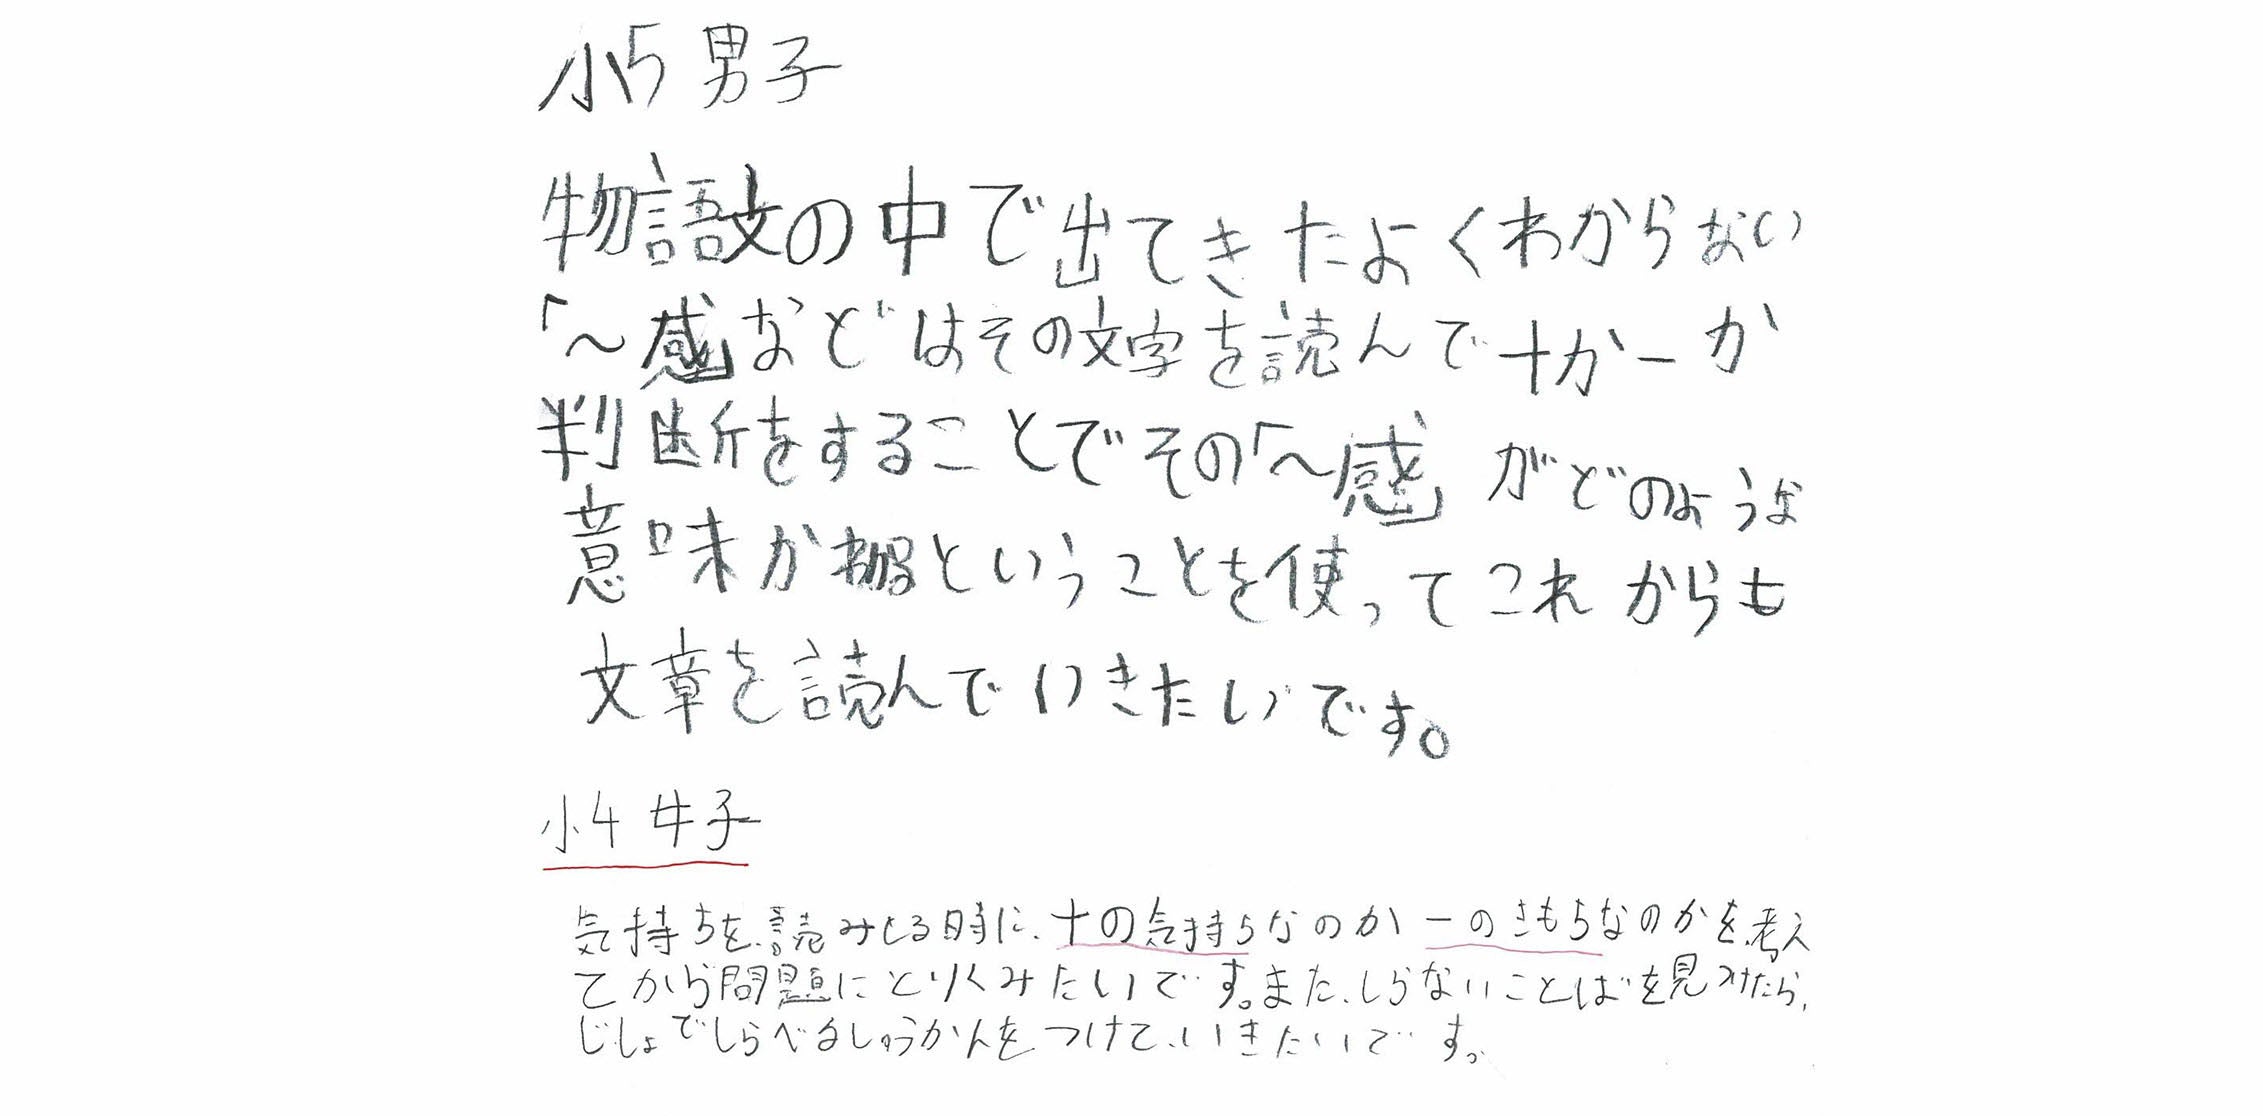 小5 男子
物語文の中で出てきたよくわからない
「〜感」などはその文字を読んで+か−か
判断をすることでその「〜感」がどのような
意味かということを使ってこれからも
文章を読んでいきたいです。
小4 女子
気持ちを読みとる時に、+の気持ちなのか−のきもちなのかを考え
てから問題にとりくみたいです。また、しらないことばを見つけたら、
じしょでしらべるしゅうかんをつけて、いきたいです。